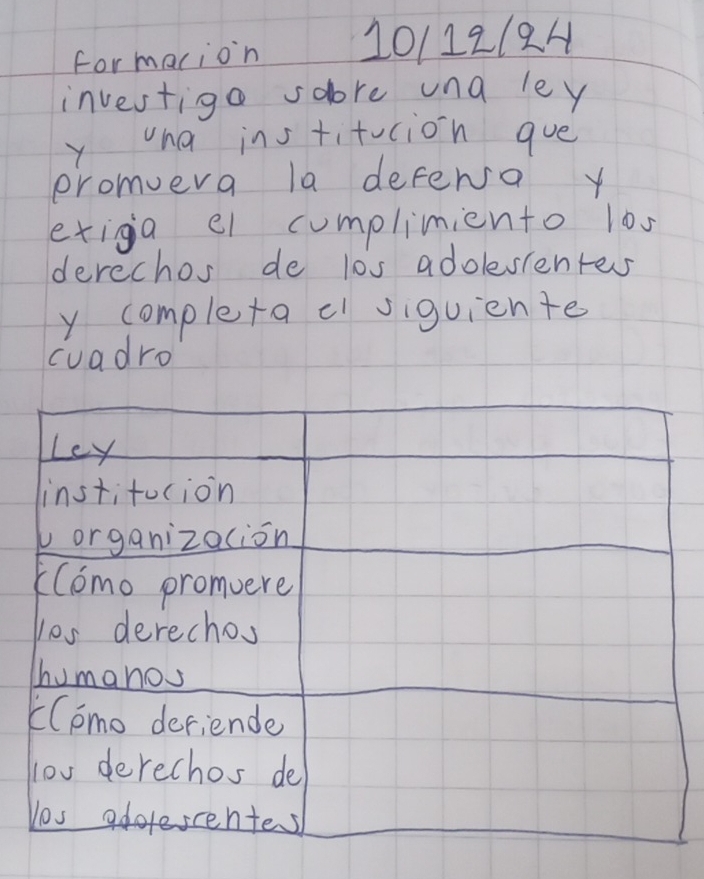 Formación 10/12/24
investiga sobre una ley
y una institución que
promueva la defensa y
exiga el cumplimiento los
derechos de los adolescentes
y completa el siguiente
cuadro
Ley
institución
u organización
¿Cómo promuere
los derechos
humanos
¿Cómo defiende
los derechos de
los adolescentes